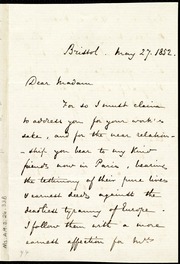 Bristol. May 27. 1852.
Dear Madam
For so I must claim
to address you for your work's
sake, and for the near relation-
ship you bear to my kind
friends now in Paris, bearing
the testimony of their pure lives
& earnest deeds against the
deadliest tyranny of Europe.
I follow them with a more
earnest affection for Mrs